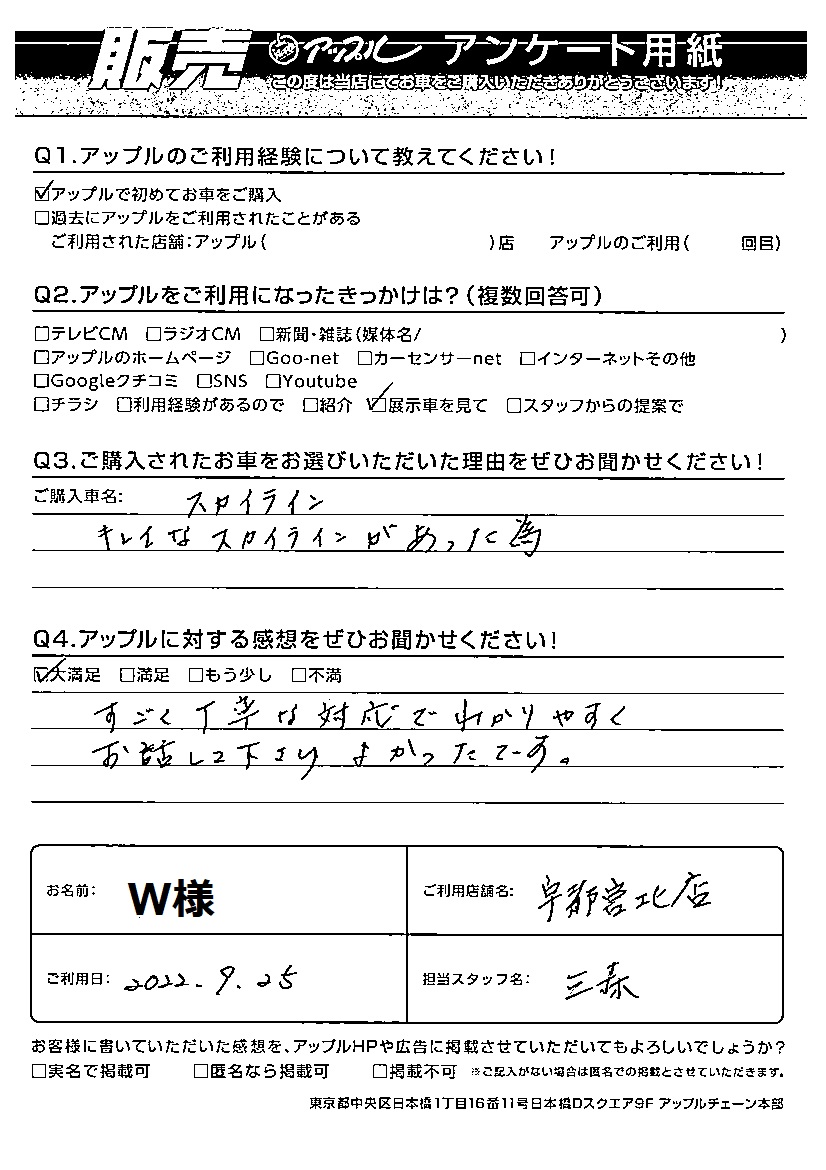 販売 アップル アンケート用紙
この度は当店にてお車をご購入いただきありがとうございます!
Q1.アップルのご利用経験について教えてください!
☑アップルで初めてお車をご購入
□過去にアップルをご利用されたことがある
ご利用された店舗:アップル( )店 アップルのご利用( 回目)
Q2.アップルをご利用になったきっかけは?(複数回答可)
□テレビCM □ラジオCM □新聞・雑誌(媒体名/ )
□アップルのホームページ □Goo-net □カーセンサーnet □インターネットその他
□Googleクチコミ □SNS □Youtube
□チラシ □利用経験があるので □紹介 ☑展示車を見て □スタッフからの提案で
Q3.ご購入されたお車をお選びいただいた理由をぜひお聞かせください!
ご購入車名: スカイライン
キレイなスカイラインがあった為
Q4.アップルに対する感想をぜひお聞かせください!
☑大満足 □満足 □もう少し □不満
すごく丁寧な対応でわかりやすく
お話して下さりよかったです。
お名前: W様 ご利用店舗名: 宇都宮北店
ご利用日: 2022.9.25 担当スタッフ名: 三森
お客様に書いていただいた感想を、アップルHPや広告に掲載させていただいてもよろしいでしょうか?
□実名で掲載可 □匿名なら掲載可 □掲載不可 ※ご記入がない場合は匿名での掲載とさせていただきます。
東京都中央区日本橋1丁目16番11号日本橋Dスクエア9F アップルチェーン本部